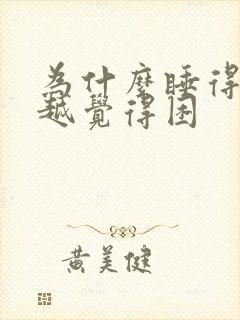 為什麼睡得
越覺得困
黃美健